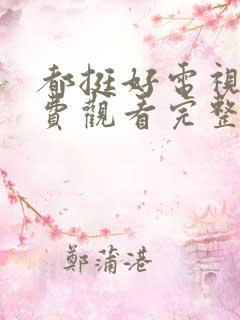 都挺好電視
費觀看完整
鄭蒲港